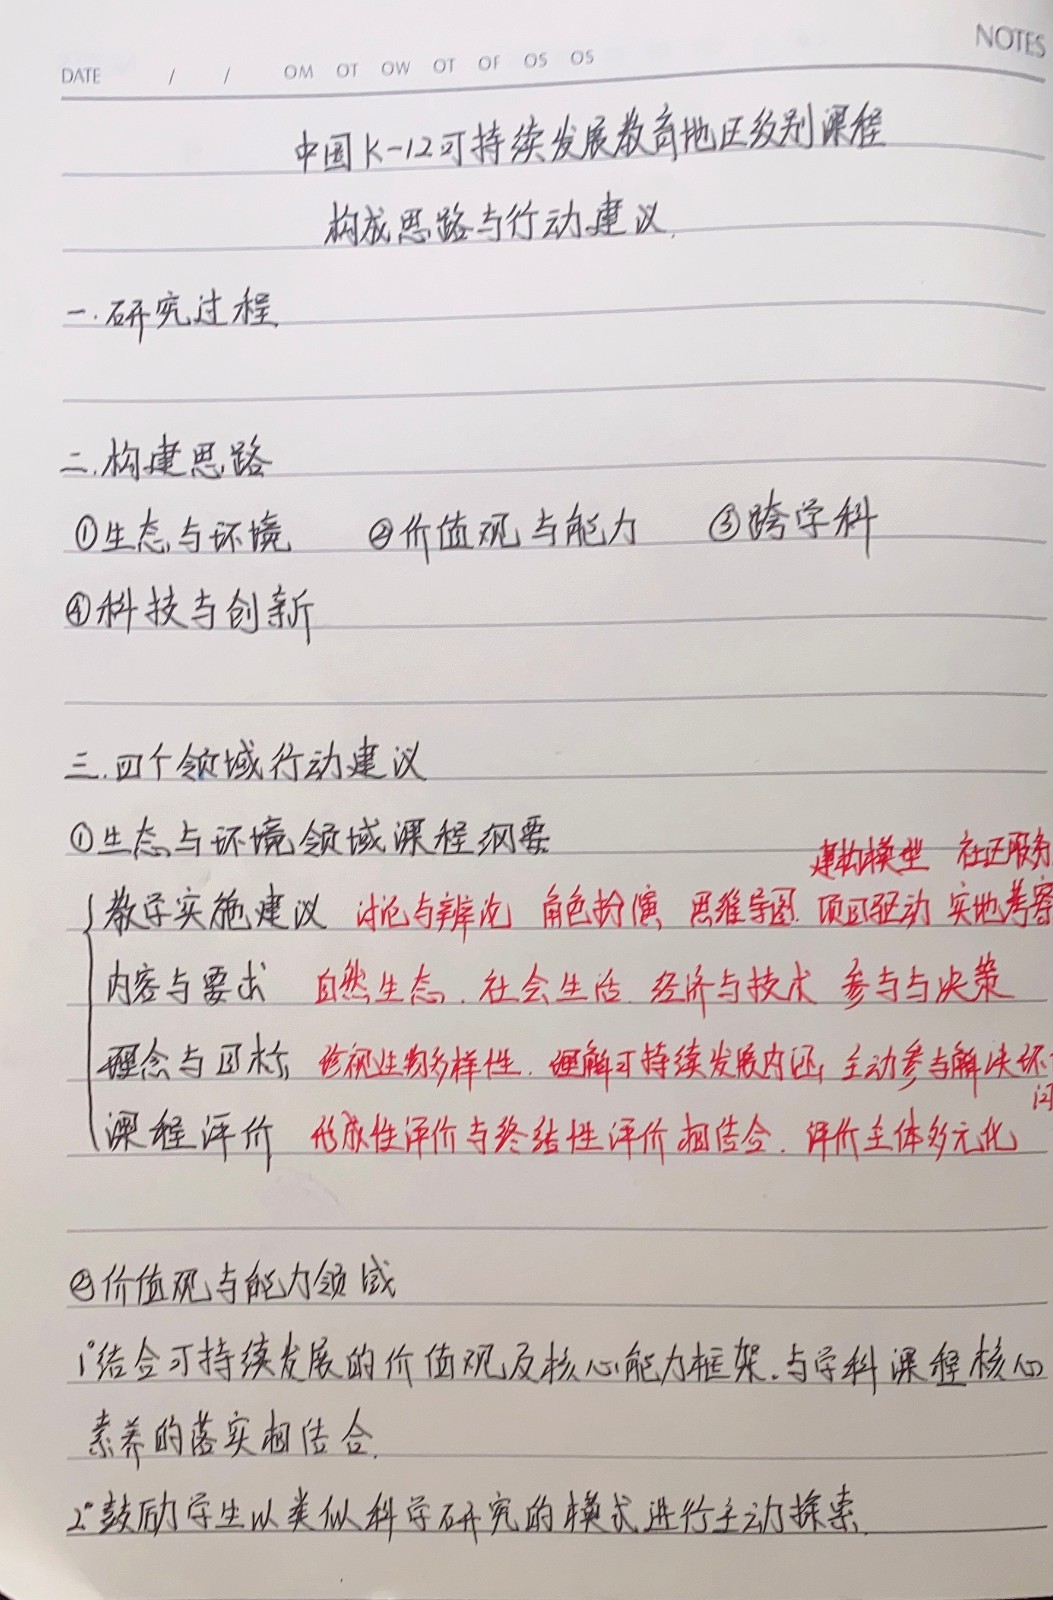 NOTES
DATE / / OM OT OW OT OF OS OS
中国K-12可持续发展教育地区级别课程
构成思路与行动建议.
一.研究过程.
二.构建思路
①生态与环境 ②价值观与能力 ③跨学科
④科技与创新
三.四个领域行动建议
①生态与环境领域课程纲要
建构模型 社区服务
教学实施建议 讨论与辨论 角色扮演 思维导图 项目驱动 实地考察
内容与要求 自然生态、社会生活 经济与技术 参与与决策
理念与目标 珍视生物多样性、理解可持续发展内涵 主动参与解决环
问
课程评价 形成性评价与终结性评价相结合、评价主体多元化
②价值观与能力领域
1°结合可持续发展的价值观及核心能力框架、与学科课程核心
素养的落实相结合.
2°鼓励学生以类似科学研究的模式进行主动探索.